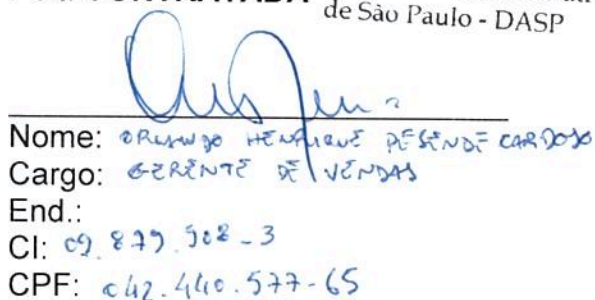 CONTRATADA
de São Paulo - DASP
Nome: ORLANDO HENRIQUE RESENDE CARDOSO
Cargo: GERENTE DE VENDAS
End.:
CI: 09.879.908-3
CPF: 042.440.577-65